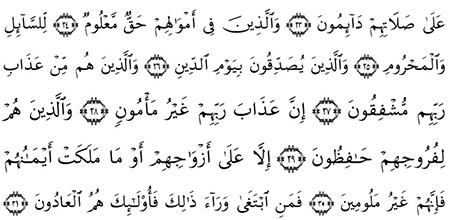 عَلَىٰ صَلَاتِهِمْ دَآئِمُونَ ﴿٢٣﴾ وَٱلَّذِينَ فِىٓ أَمْوَٰلِهِمْ حَقٌّ مَّعْلُومٌ ﴿٢٤﴾ لِّلسَّآئِلِ
وَٱلْمَحْرُومِ ﴿٢٥﴾ وَٱلَّذِينَ يُصَدِّقُونَ بِيَوْمِ ٱلدِّينِ ﴿٢٦﴾ وَٱلَّذِينَ هُم مِّنْ عَذَابِ
رَبِّهِم مُّشْفِقُونَ ﴿٢٧﴾ إِنَّ عَذَابَ رَبِّهِمْ غَيْرُ مَأْمُونٍ ﴿٢٨﴾ وَٱلَّذِينَ هُمْ
لِفُرُوجِهِمْ حَٰفِظُونَ ﴿٢٩﴾ إِلَّا عَلَىٰٓ أَزْوَٰجِهِمْ أَوْ مَا مَلَكَتْ أَيْمَٰنُهُمْ
فَإِنَّهُمْ غَيْرُ مَلُومِينَ ﴿٣٠﴾ فَمَنِ ٱبْتَغَىٰ وَرَآءَ ذَٰلِكَ فَأُو۟لَٰٓئِكَ هُمُ ٱلْعَادُونَ ﴿٣١﴾